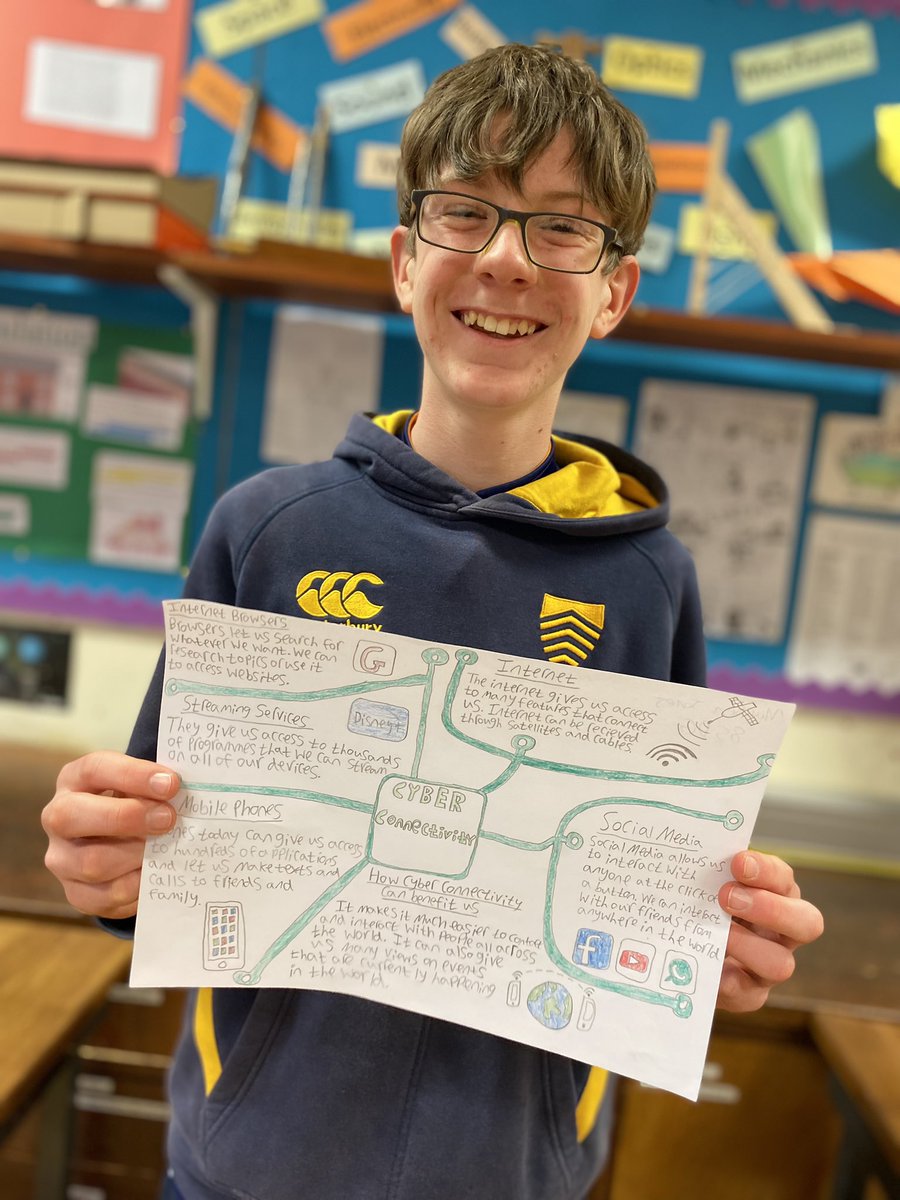 Optics
Mechanics
Internet Browsers
Browsers let us search for
whatever we want. We can
research topics or use it
to access websites.
G
Streaming Services
They give us access to thousands
of Programmes that we can stream
on all of our devices.
Disney+
Internet
The internet gives us access
to many features that connect
us. Internet can be recieved
through Satellites and cables.
CYBER
Connectivity
Mobile Phones
today can give us access
to hundreds of applications
and let us make texts and
calls to friends and
family.
How Cyber Connectivity
Can benefit us
It makes it much easier to contact
and interact with People all across
the world. It can also give
us many views on events
that are currently happening
in the world.
Social Media
Social Media allows us
to interact with
anyone at the click of
a button. We can interact
with our friends from
anywhere in the world
f